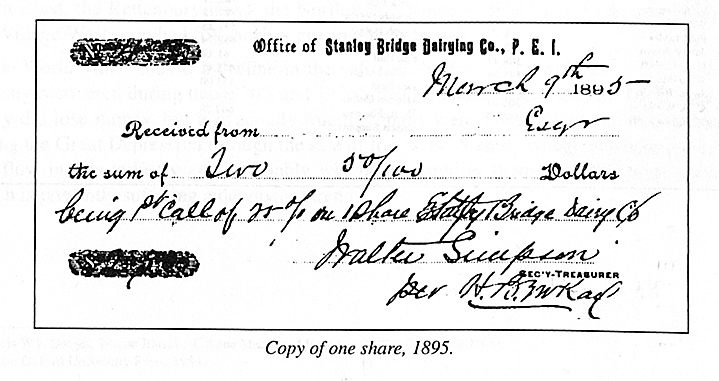 Office of Stanley Bridge Dairying Co., P. E. I.
March 9th 1895
Received from Esqr
the sum of Two 50/100 Dollars
being 1st Call of % on 1 Share Bridge Dairy Co
Walter Simpson
SEC'Y-TREASURER
per
Copy of one share, 1895.